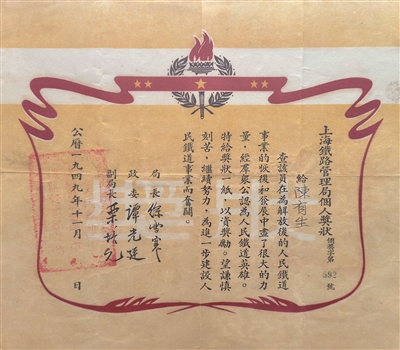 上海鐵路管理局個人獎狀
個獎字第692號
給陳有生
查該員在為解放後的人民鐵道
事業的恢復和發展中盡了很大的力
量，經羣衆公認為人民鐵道英雄。
特給獎狀一紙，以資獎勵。望謙慎
刻苦，繼續努力，為進一步建設人
民鐵道事業而奮鬥。
局長
政委 譚光廷
副局長
公曆一九四九年十一月 日